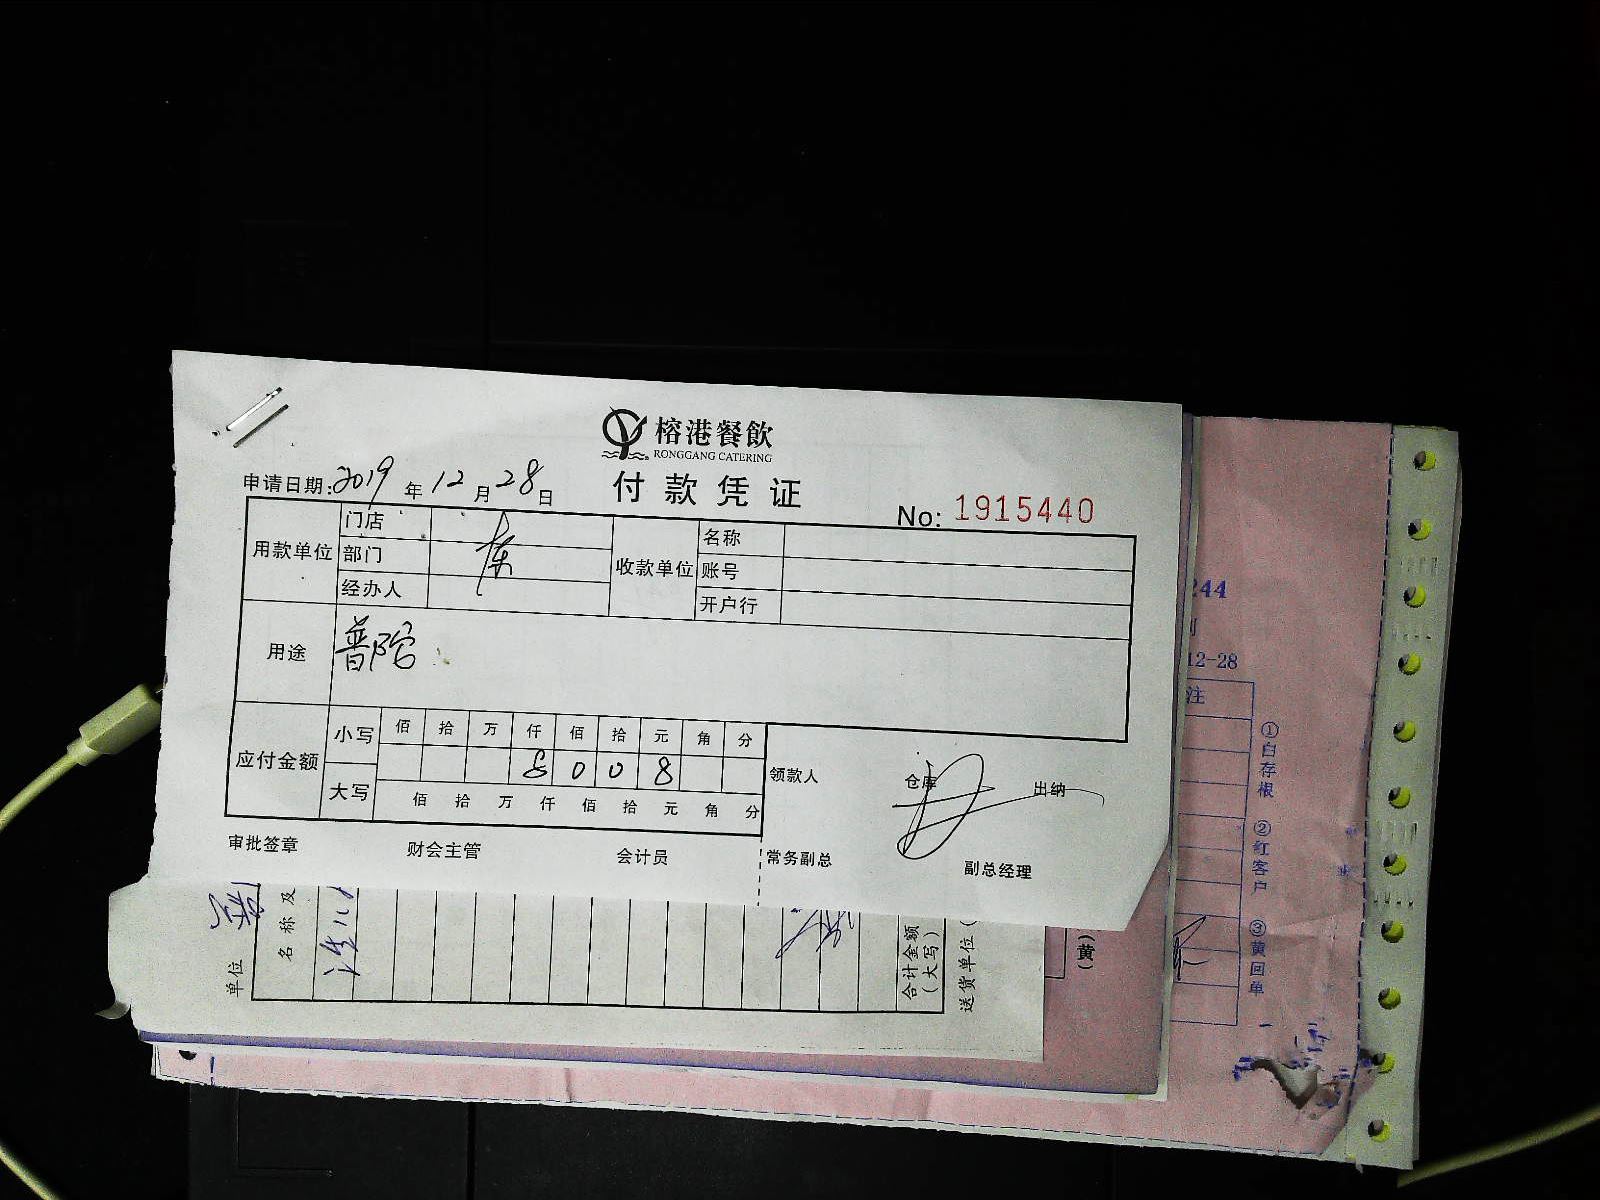 榕港餐飲
RONGGANG CATERING
付款凭证
申请日期:2019年12月28日
No: 1915440
用款单位 门店 收款单位 名称
部门 账号
经办人 开户行
用途 普陀
应付金额 小写 佰 拾 万 仟 佰 拾 元 角 分
8 0 0 8
大写 佰 拾 万 仟 佰 拾 元 角 分
领款人 仓库 出纳
审批签章 财会主管 会计员 常务副总 副总经理
单位
名称及
合计金额
(大写)
送货单位(
(黄)
244
12-28
注
①白存根 ②红客户 ③黄回单